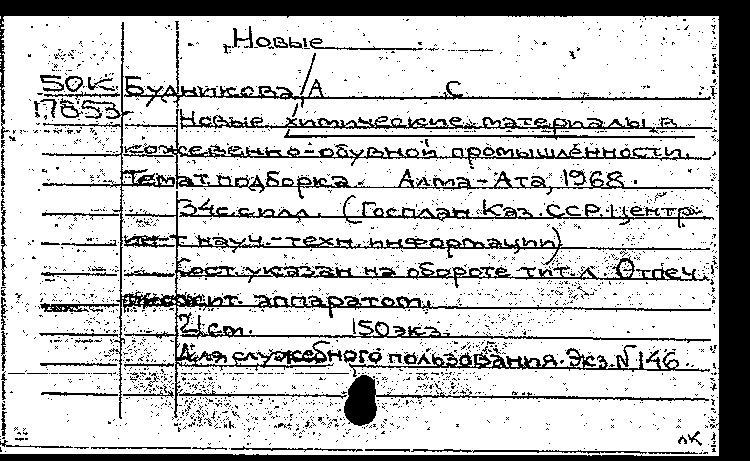 Новые
50К Будникова А С
17853 Новые химические материалы в
кожевенно-обувной промышленности.
Темат. подборка. Алма-Ата, 1968.
34с. с илл. (Госплан Каз. ССР. Центр.
ин-т науч.-техн. информации)
Сост. указан на обороте тит. л. Отпеч.
множит. аппаратом.
21см. 150экз.
Для служебного пользования. Экз. N 146.
лк